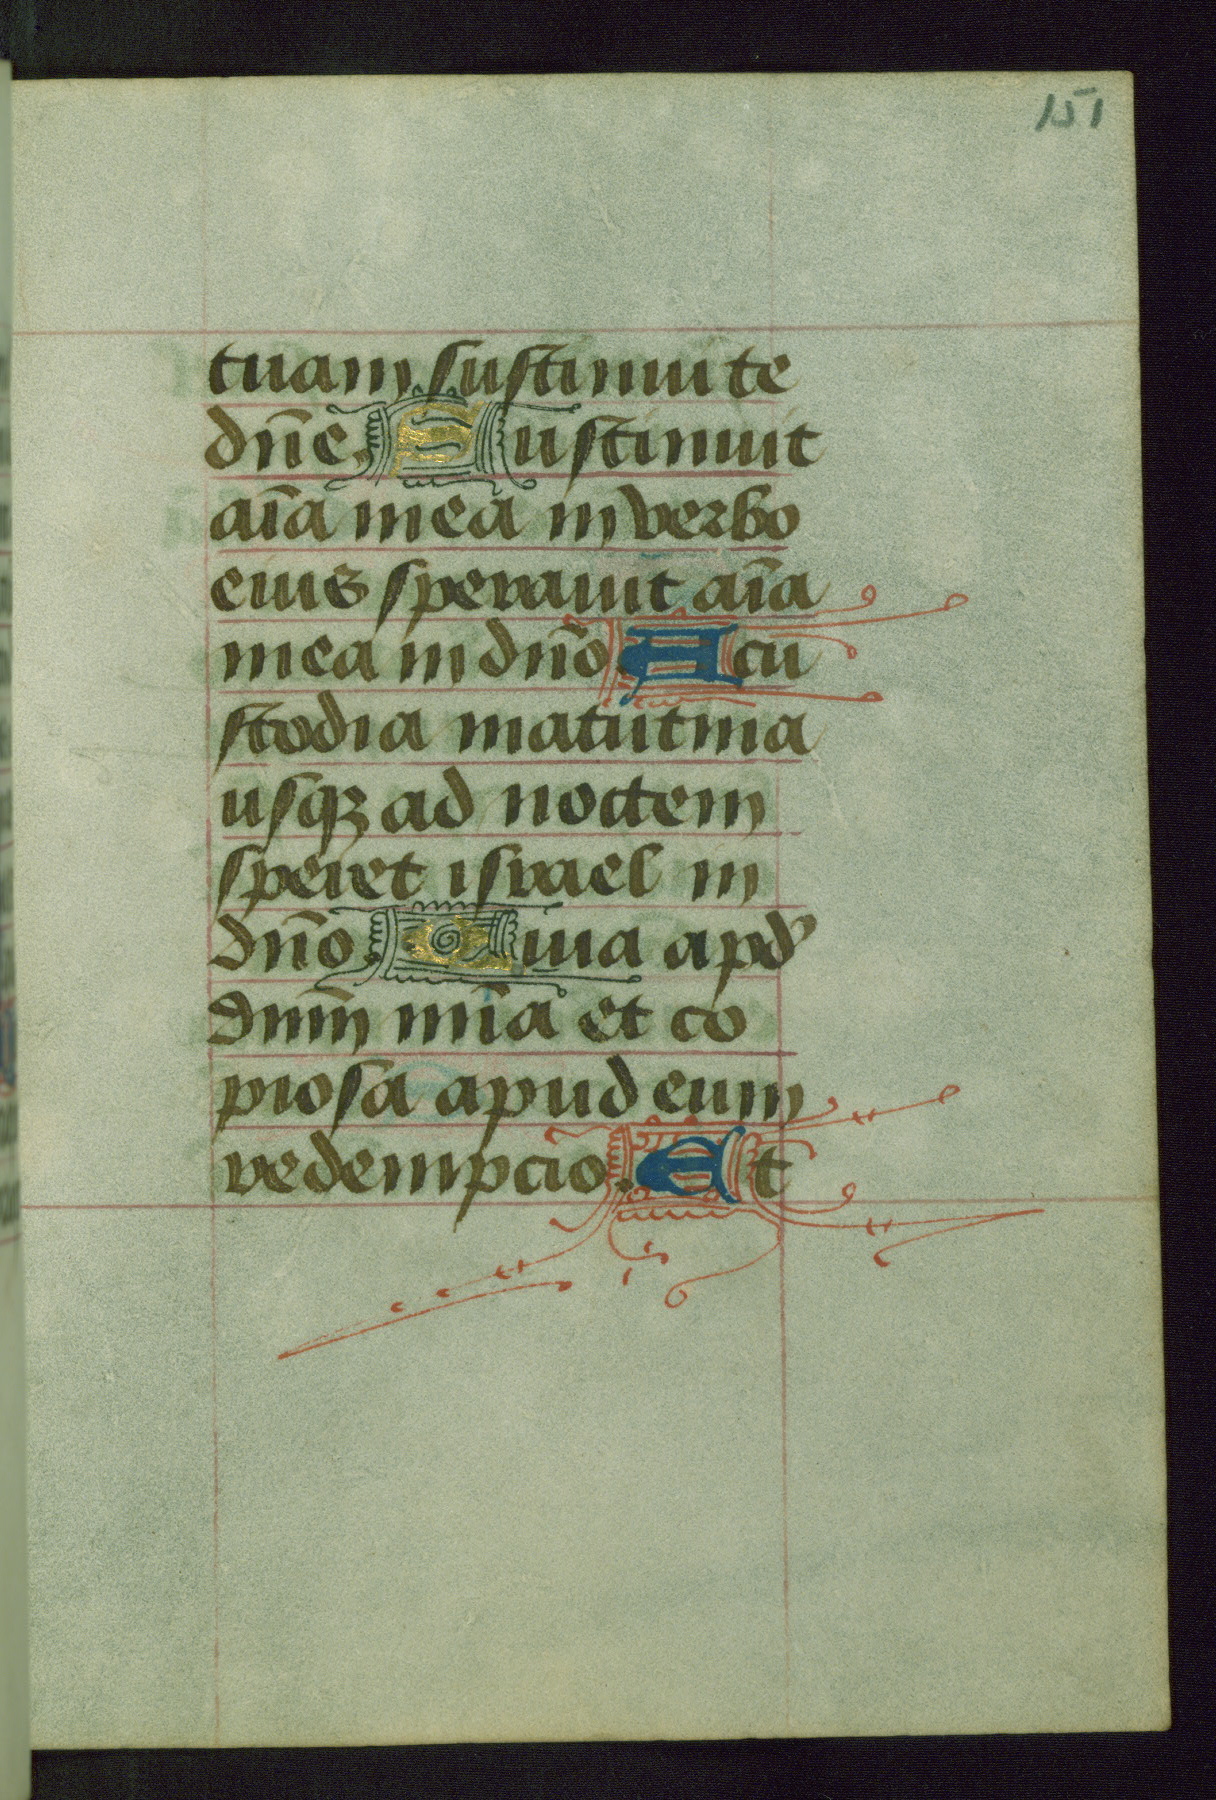 151
tuam sustinui te
dn̄e Sustinuit
aīa mea in verbo
eius speravit aīa
mea in dn̄o A cu
stodia matutina
usqꝫ ad noctem
speret israel in
dn̄o Quia apd'
dnm̄ mīa et co
piosa apud eum
redempcio. Et